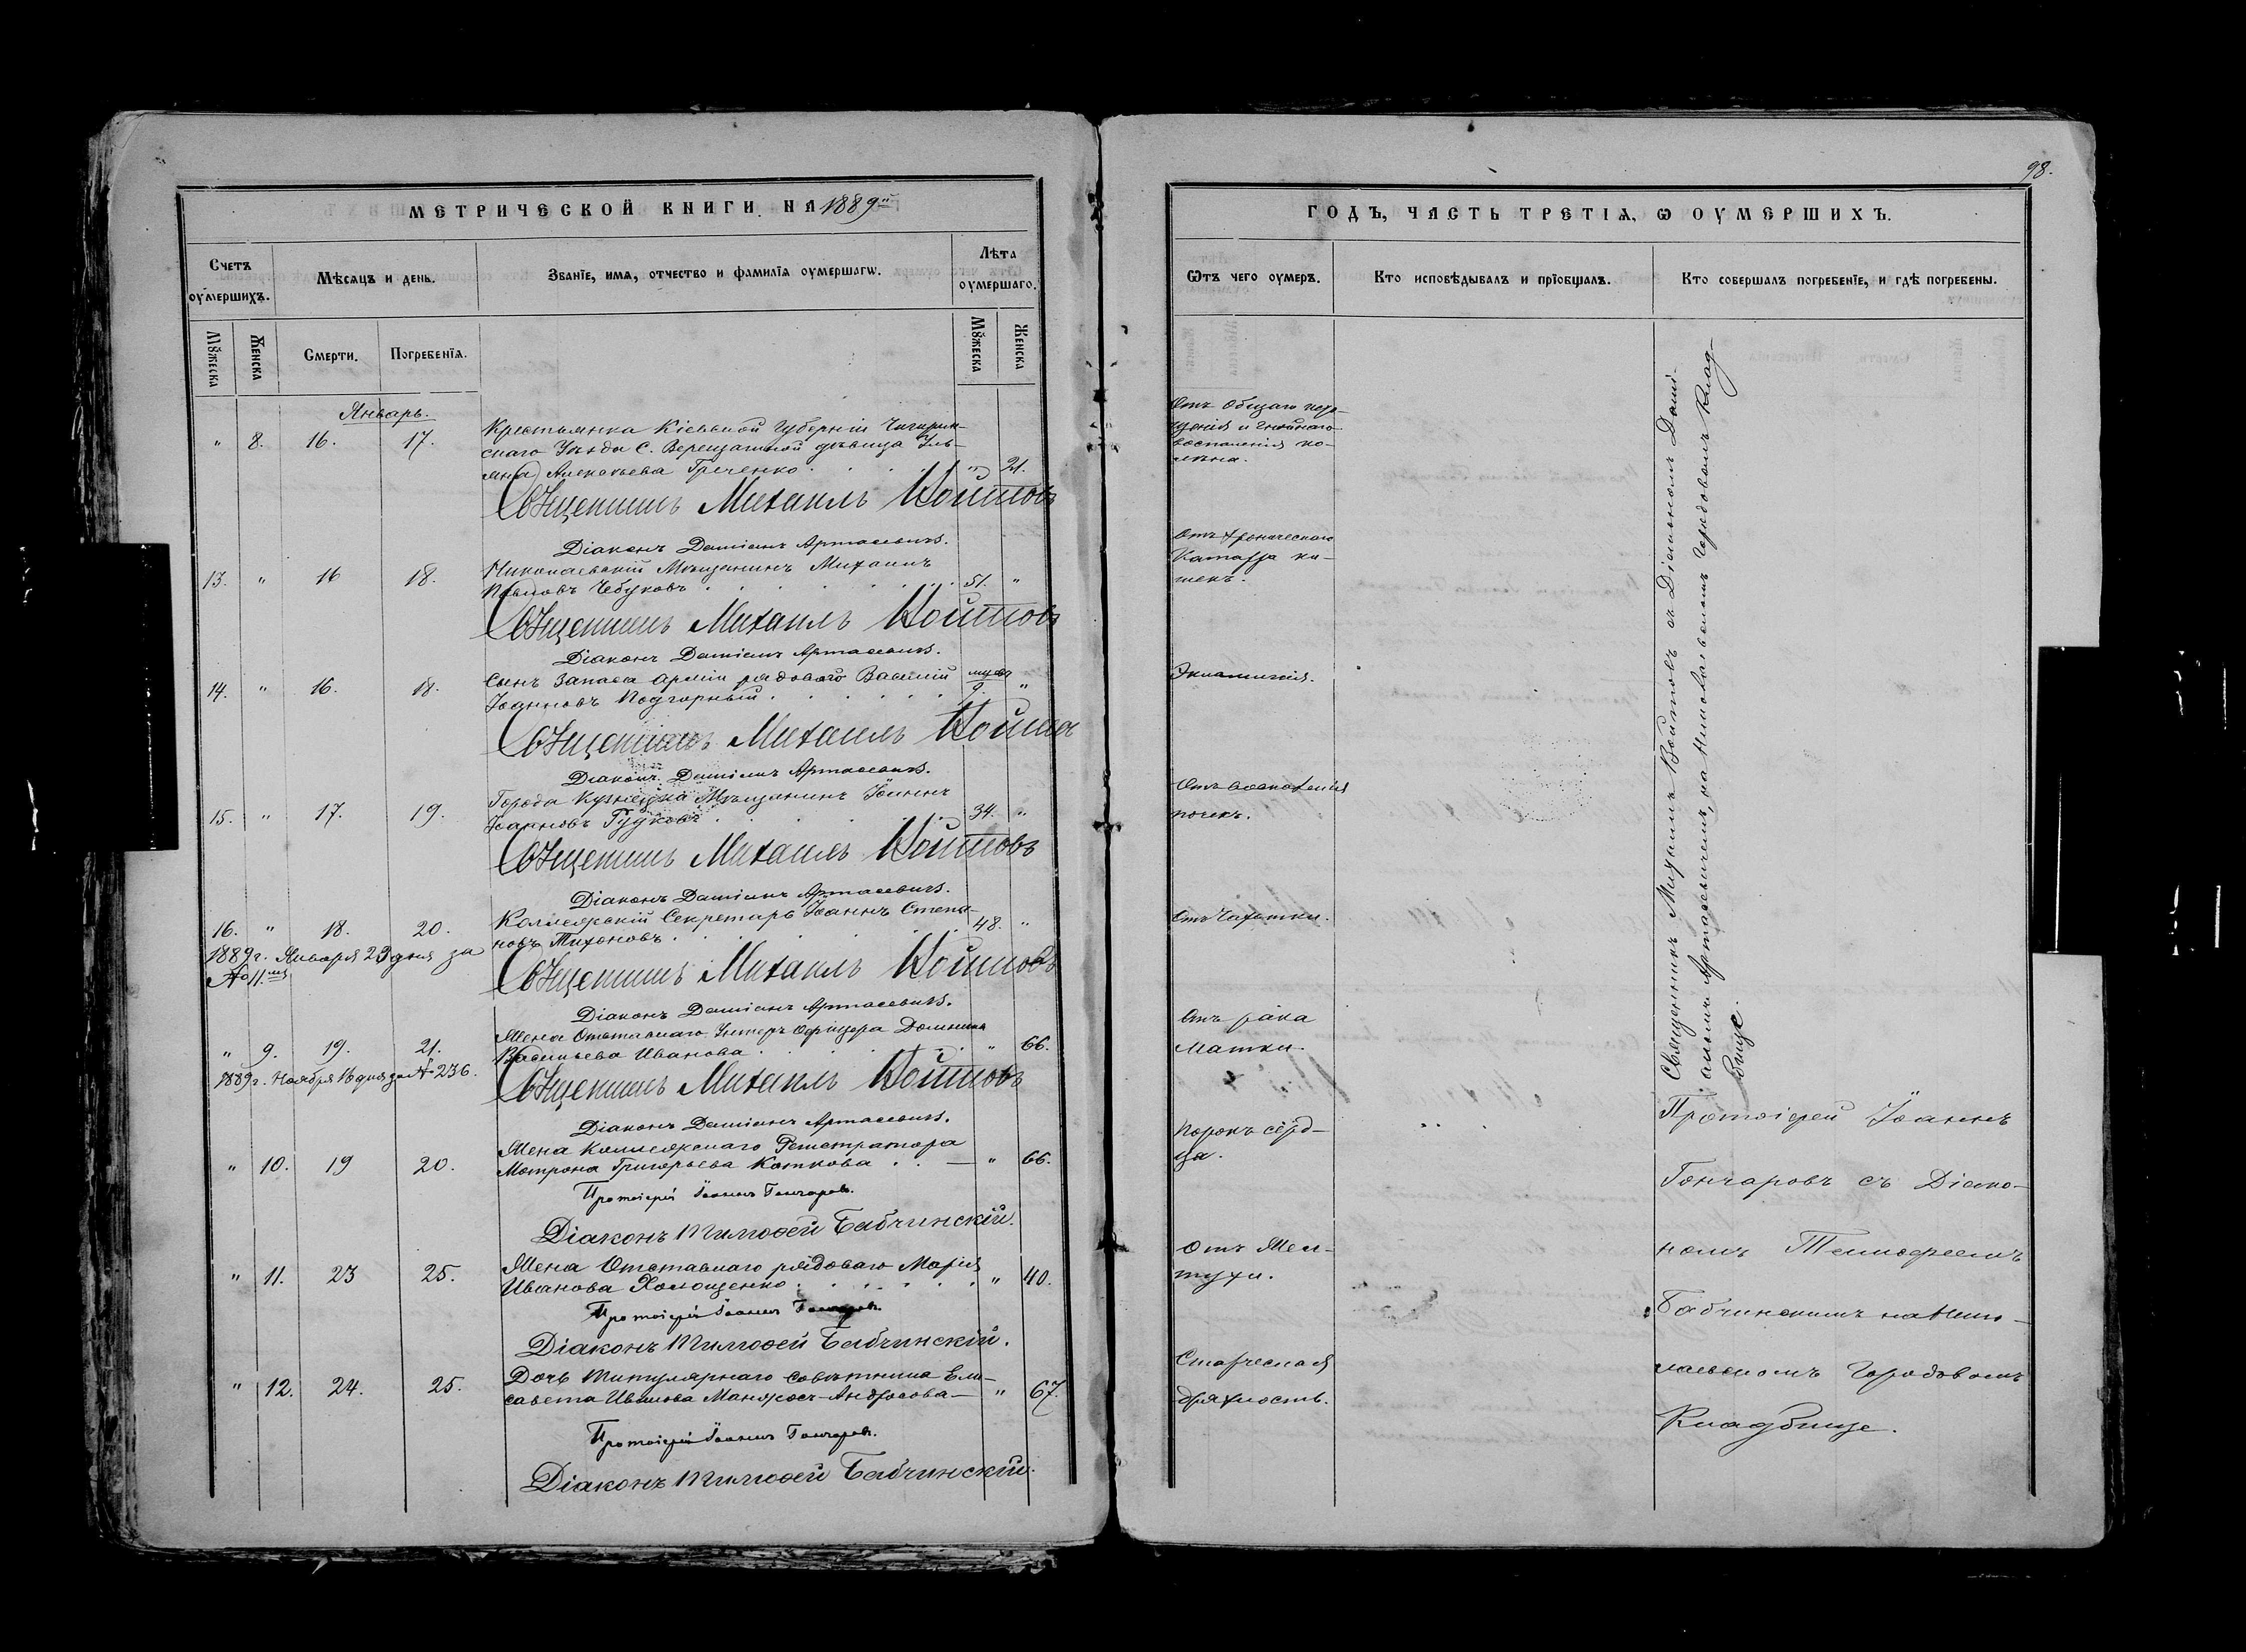 МЕТРИЧЕСКОЙ КНИГИ НА 1889й
Счетъ оумершихъ.
Мѣсяцъ и день.
Званїе, имя, отчество и фамилїя оумершагѡ.
Лѣта оумершаго.
Мꙋжеска
Женска
Смерти.
Погребенїя.
Мꙋжеска
Женска
Январь.
" 8. 16. 17. Крестьянка Кіевской Губерніи Чигирин-
скаго Уѣзда С. Верещакиной дѣвица Уль-
яна Алексѣева Греченко . . . " 21.
Священникъ Михаилъ Войтовъ
Діаконъ Даміанъ Артасевичъ.
13. " 16 18. Николаевскій Мѣщанинъ Михаилъ
Павловъ Чебуковъ . . . 51. "
Священникъ Михаилъ Войтовъ
Діаконъ Даміанъ Артасевичъ.
14. " 16. 18. Сынъ Запаса Арміи рядоваго Василій
Іоанновъ Подгорный . . . 9. "
Священникъ Михаилъ Войтовъ
Діаконъ Даміанъ Артасевичъ.
15. " 17. 19. Города Кузнецка Мѣщанинъ Іоаннъ
Іоанновъ Гудковъ . . . 34. "
Священникъ Михаилъ Войтовъ
Діаконъ Даміанъ Артасевичъ.
16. " 18. 20. Коллежскій Секретарь Іоаннъ Степа-
новъ Тихоновъ . . . 48. "
1889г. Января 23 дня за
№ 11.мъ
Священникъ Михаилъ Войтовъ
Діаконъ Даміанъ Артасевичъ.
" 9. 19. 21. Жена Отставнаго Унтеръ Офицера Домника
Васильева Иванова . . . " 66.
1889г. Ноября 16 дня за № 236.
Священникъ Михаилъ Войтовъ
Діаконъ Даміанъ Артасевичъ.
" 10. 19 20. Жена Коллежскаго Регистратора
Матрона Григорьева Каткова . . — " 66.
Протоіерей Іоаннъ Гончаровъ.
Діаконъ Тимоѳей Бабчинскій.
" 11. 23 25. Жена Отставнаго рядоваго Марія
Иванова Холощенко . . . " 40.
Протоіерей Іоаннъ Гончаровъ.
Діаконъ Тимоѳей Бабчинскій.
" 12. 24. 25. Дочь Титулярнаго Совѣтника Ели-
савета Иванова Манжосъ-Андросова — " 67.
Протоіерей Іоаннъ Гончаровъ.
Діаконъ Тимоѳей Бабчинскій.
98.
ГОДЪ, ЧАСТЬ ТРЕТІЯ, Ѡ ОУМЕРШИХЪ.
Ѿтъ чего оумеръ.
Кто исповѣдывалъ и прїобщалъ.
Кто совершалъ погребенїе, и гдѣ погребены.
Отъ Общаго
и гнойнаго
воспаленія ко-
лѣна.
Отъ хроническаго
Катарра ки-
шекъ.
Эклампсія.
Отъ воспаленія
почекъ.
Отъ Чахотки.
Отъ рака
Матки.
Порокъ серд-
ца.
Отъ Жел-
тухи.
Старческая
дряхлость.
Священникъ Михаилъ Войтовъ съ Діакономъ Дамі-
аномъ Артасевичемъ, на Николаевскомъ Городовомъ Клад-
бищѣ.
Протоіерей Іоаннъ
Гончаровъ съ Діако-
номъ Тимоѳеемъ
Бабчинскимъ на Нико-
лаевскомъ Городовомъ
Кладбищѣ.